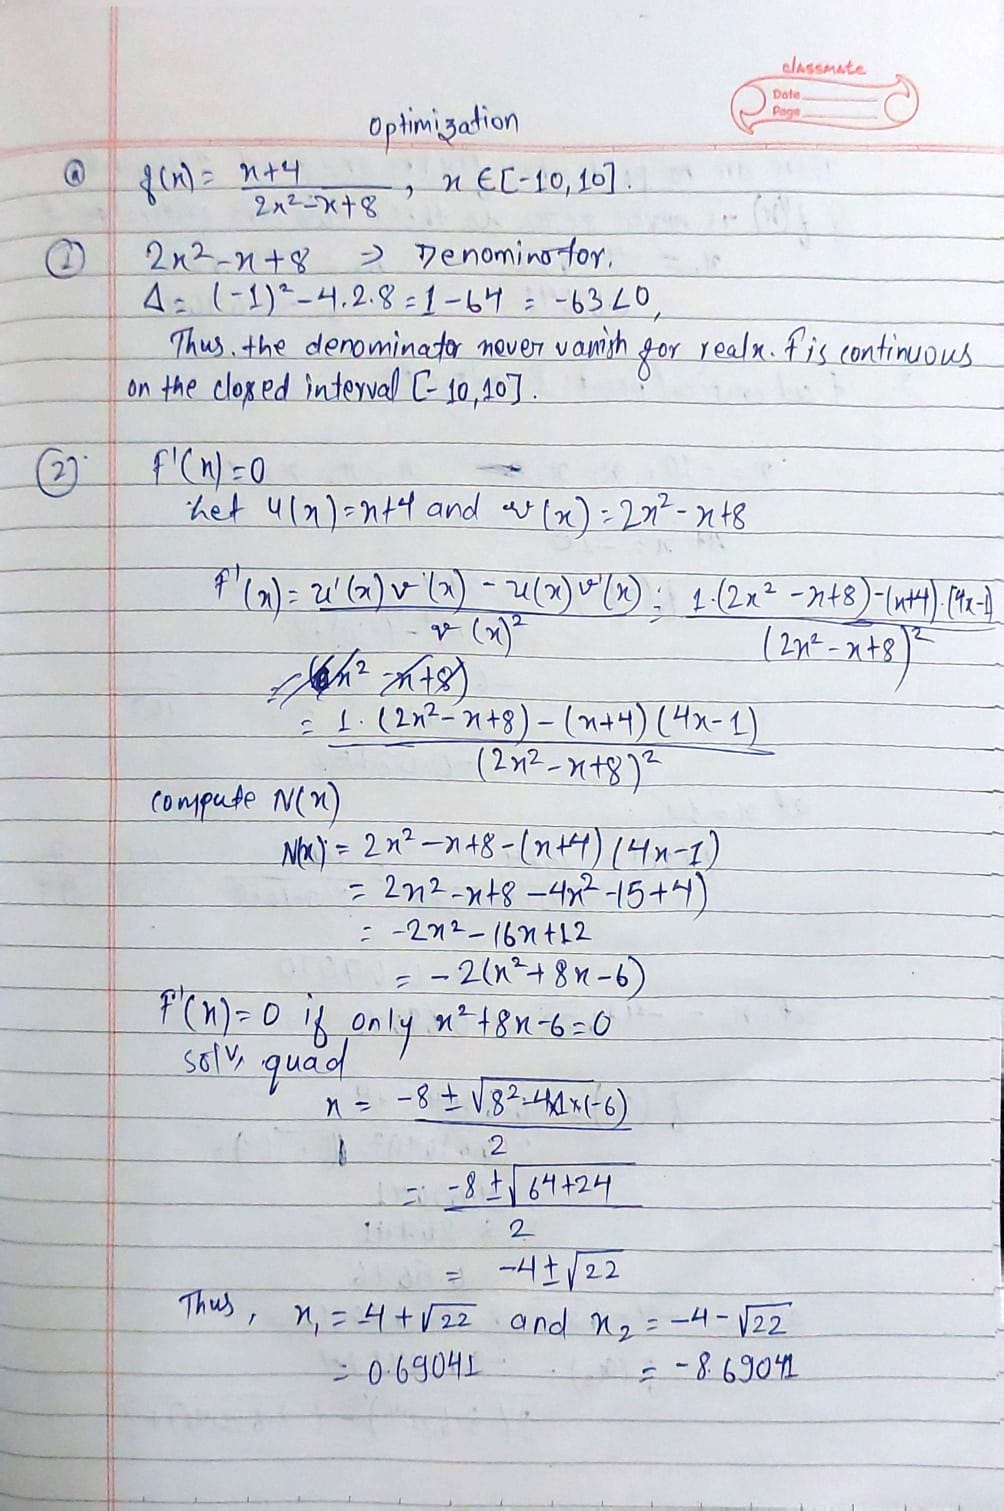 classmate
Date
Page
Optimization
ⓐ f(x) = x+4 / 2x²-x+8 , x ∈ [-10, 10].
① 2x²-x+8 ⇒ Denominator.
Δ = (-1)² - 4.2.8 = 1-64 = -63 < 0,
Thus, the denominator never vanish for real x. f is continuous
on the closed interval [-10, 10].
② f'(x) = 0
Let u(x) = x+4 and v(x) = 2x²-x+8
f'(x) = u'(x) v(x) - u(x) v'(x) / v(x)² = 1.(2x²-x+8)-(x+4).(4x-1) / (2x²-x+8)²
= 1.(2x²-x+8) - (x+4)(4x-1) / (2x²-x+8)²
compute N(x)
N(x) = 2x²-x+8-(x+4)(4x-1)
= 2x²-x+8-4x²-15+4)
= -2x²-16x+12
= -2(x²+8x-6)
f'(x) = 0 if only x²+8x-6=0
solv, quad
x = -8 ± √8²-4x1x(-6) / 2
= -8 ± √64+24 / 2
= -4 ± √22
Thus, x₁ = -4+√22 and x₂ = -4-√22
= 0.69041 = -8.69041